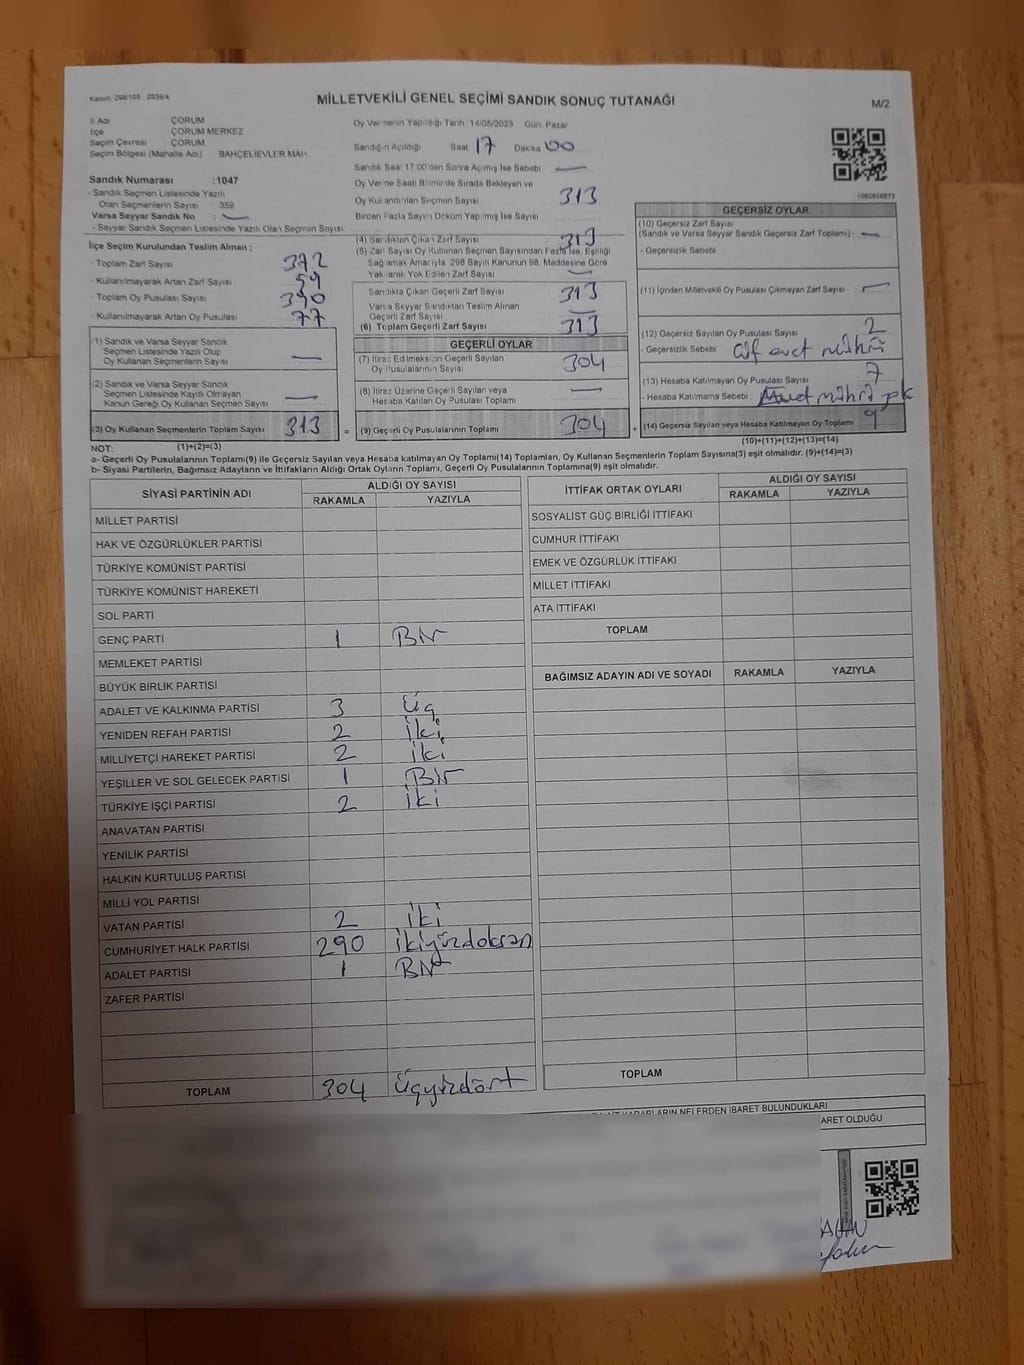 Kanun: 298/105 - 2839/4
MİLLETVEKİLİ GENEL SEÇİMİ SANDIK SONUÇ TUTANAĞI
M/2
İl Adı ÇORUM
İlçe ÇORUM MERKEZ
Seçim Çevresi ÇORUM
Seçim Bölgesi (Mahalle Adı) BAHÇELİEVLER MAH
Sandık Numarası :1047
- Sandık Seçmen Listesinde Yazılı
Olan Seçmenlerin Sayısı : 359
Varsa Seyyar Sandık No : —
- Seyyar Sandık Seçmen Listesinde Yazılı Olan Seçmen Sayısı:
İlçe Seçim Kurulundan Teslim Alınan :
- Toplam Zarf Sayısı 372
- Kullanılmayarak Artan Zarf Sayısı 59
- Toplam Oy Pusulası Sayısı 390
- Kullanılmayarak Artan Oy Pusulası 77
(1) Sandık ve Varsa Seyyar Sandık
Seçmen Listesinde Yazılı Olup
Oy Kullanan Seçmenlerin Sayısı —
(2) Sandık ve Varsa Seyyar Sandık
Seçmen Listesinde Kayıtlı Olmayan
Kanun Gereği Oy Kullanan Seçmen Sayısı —
(3) Oy Kullanan Seçmenlerin Toplam Sayısı 313 =
Oy Vermenin Yapıldığı Tarih :14/05/2023 Gün: Pazar
Sandığın Açıldığı Saat 17 Dakika 00
Sandık Saat 17:00'den Sonra Açılmış İse Sebebi —
Oy Verme Saati Bitiminde Sırada Bekleyen ve
Oy Kullandırılan Seçmen Sayısı 313
Birden Fazla Sayım Döküm Yapılmış İse Sayısı
(4) Sandıktan Çıkan Zarf Sayısı 313
(5) Zarf Sayısı Oy Kullanan Seçmen Sayısından Fazla İse, Eşitliği
Sağlamak Amacıyla 298 Sayılı Kanunun 98. Maddesine Göre
Yakılarak Yok Edilen Zarf Sayısı —
Sandıkta Çıkan Geçerli Zarf Sayısı 313
Varsa Seyyar Sandıktan Teslim Alınan
Geçerli Zarf Sayısı —
(6) Toplam Geçerli Zarf Sayısı 313
GEÇERLİ OYLAR
(7) İtiraz Edilmeksizin Geçerli Sayılan
Oy Pusulalarının Sayısı 304
(8) İtiraz Üzerine Geçerli Sayılan veya
Hesaba Katılan Oy Pusulası Toplamı —
(9) Geçerli Oy Pusulalarının Toplamı 304 +
1683858873
GEÇERSİZ OYLAR
(10) Geçersiz Zarf Sayısı
(Sandık ve Varsa Seyyar Sandık Geçersiz Zarf Toplamı) : —
- Geçersizlik Sebebi :
(11) İçinden Milletvekili Oy Pusulası Çıkmayan Zarf Sayısı : —
(12) Geçersiz Sayılan Oy Pusulası Sayısı 2
- Geçersizlik Sebebi : Çift evet mührü
(13) Hesaba Katılmayan Oy Pusulası Sayısı 7
- Hesaba Katılmama Sebebi : mührü yok
(14) Geçersiz Sayılan veya Hesaba Katılmayan Oy Toplamı 9
NOT: (1)+(2)=(3)
(10)+(11)+(12)+(13)=(14)
a- Geçerli Oy Pusulalarının Toplamı(9) ile Geçersiz Sayılan veya Hesaba katılmayan Oy Toplamı(14) Toplamları, Oy Kullanan Seçmenlerin Toplam Sayısına(3) eşit olmalıdır. (9)+(14)=(3)
b- Siyasi Partilerin, Bağımsız Adayların ve İttifakların Aldığı Ortak Oyların Toplamı, Geçerli Oy Pusulalarının Toplamına(9) eşit olmalıdır.
SİYASİ PARTİNİN ADI ALDIĞI OY SAYISI
RAKAMLA YAZIYLA
MİLLET PARTİSİ
HAK VE ÖZGÜRLÜKLER PARTİSİ
TÜRKİYE KOMÜNİST PARTİSİ
TÜRKİYE KOMÜNİST HAREKETİ
SOL PARTİ
GENÇ PARTİ 1 Bir
MEMLEKET PARTİSİ
BÜYÜK BİRLİK PARTİSİ
ADALET VE KALKINMA PARTİSİ 3 Üç
YENİDEN REFAH PARTİSİ 2 İki
MİLLİYETÇİ HAREKET PARTİSİ 2 İki
YEŞİLLER VE SOL GELECEK PARTİSİ 1 Bir
TÜRKİYE İŞÇİ PARTİSİ 2 İki
ANAVATAN PARTİSİ
YENİLİK PARTİSİ
HALKIN KURTULUŞ PARTİSİ
MİLLİ YOL PARTİSİ
VATAN PARTİSİ 2 İki
CUMHURİYET HALK PARTİSİ 290 İkiyüzdoksan
ADALET PARTİSİ 1 Bir
ZAFER PARTİSİ
TOPLAM 304 Üçyüzdört
İTTİFAK ORTAK OYLARI ALDIĞI OY SAYISI
RAKAMLA YAZIYLA
SOSYALİST GÜÇ BİRLİĞİ İTTİFAKI
CUMHUR İTTİFAKI
EMEK VE ÖZGÜRLÜK İTTİFAKI
MİLLET İTTİFAKI
ATA İTTİFAKI
TOPLAM
BAĞIMSIZ ADAYIN ADI VE SOYADI RAKAMLA YAZIYLA
TOPLAM
KARARLARIN NELERDEN İBARET BULUNDUKLARI
ARET OLDUĞU